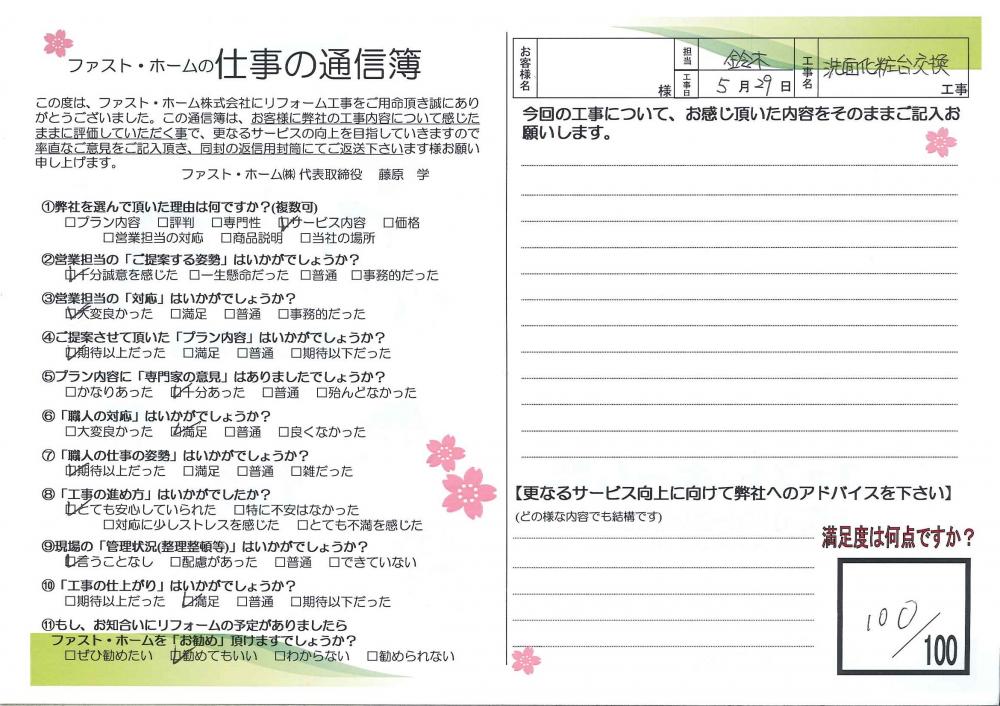 ファスト・ホームの仕事の通信簿
この度は、ファスト・ホーム株式会社にリフォーム工事をご用命頂き誠にあり
がとうございました。この通信簿は、お客様に弊社の工事内容について感じた
ままに評価していただく事で、更なるサービスの向上を目指していきますので
率直なご意見をご記入頂き、同封の返信用封筒にてご返送下さいます様お願い
申し上げます。
ファスト・ホーム㈱ 代表取締役 藤原 学
①弊社を選んで頂いた理由は何ですか？(複数可)
□プラン内容 □評判 □専門性 ☑サービス内容 □価格
□営業担当の対応 □商品説明 □当社の場所
②営業担当の「ご提案する姿勢」はいかがでしょうか？
☑十分誠意を感じた □一生懸命だった □普通 □事務的だった
③営業担当の「対応」はいかがでしょうか？
☑大変良かった □満足 □普通 □事務的だった
④ご提案させて頂いた「プラン内容」はいかがでしょうか？
☑期待以上だった □満足 □普通 □期待以下だった
⑤プラン内容に「専門家の意見」はありましたでしょうか？
□かなりあった ☑十分あった □普通 □殆んどなかった
⑥「職人の対応」はいかがでしょうか？
□大変良かった ☑満足 □普通 □良くなかった
⑦「職人の仕事の姿勢」はいかがでしょうか？
☑期待以上だった □満足 □普通 □雑だった
⑧「工事の進め方」はいかがでしたか？
☑とても安心していられた □特に不安はなかった
□対応に少しストレスを感じた □とても不満を感じた
⑨現場の「管理状況(整理整頓等)」はいかがでしょうか？
☑言うことなし □配慮があった □普通 □できていない
⑩「工事の仕上がり」はいかがでしょうか？
□期待以上だった ☑満足 □普通 □期待以下だった
⑪もし、お知合いにリフォームの予定がありましたら
ファスト・ホームを「お勧め」頂けますでしょうか？
□ぜひ勧めたい ☑勧めてもいい □わからない □勧められない
お客様名 様 担当 鈴木 工事日 5月29日 工事名 洗面化粧台交換 工事
今回の工事について、お感じ頂いた内容をそのままご記入お
願いします。
【更なるサービス向上に向けて弊社へのアドバイスを下さい】
(どの様な内容でも結構です)
満足度は何点ですか？
100/100